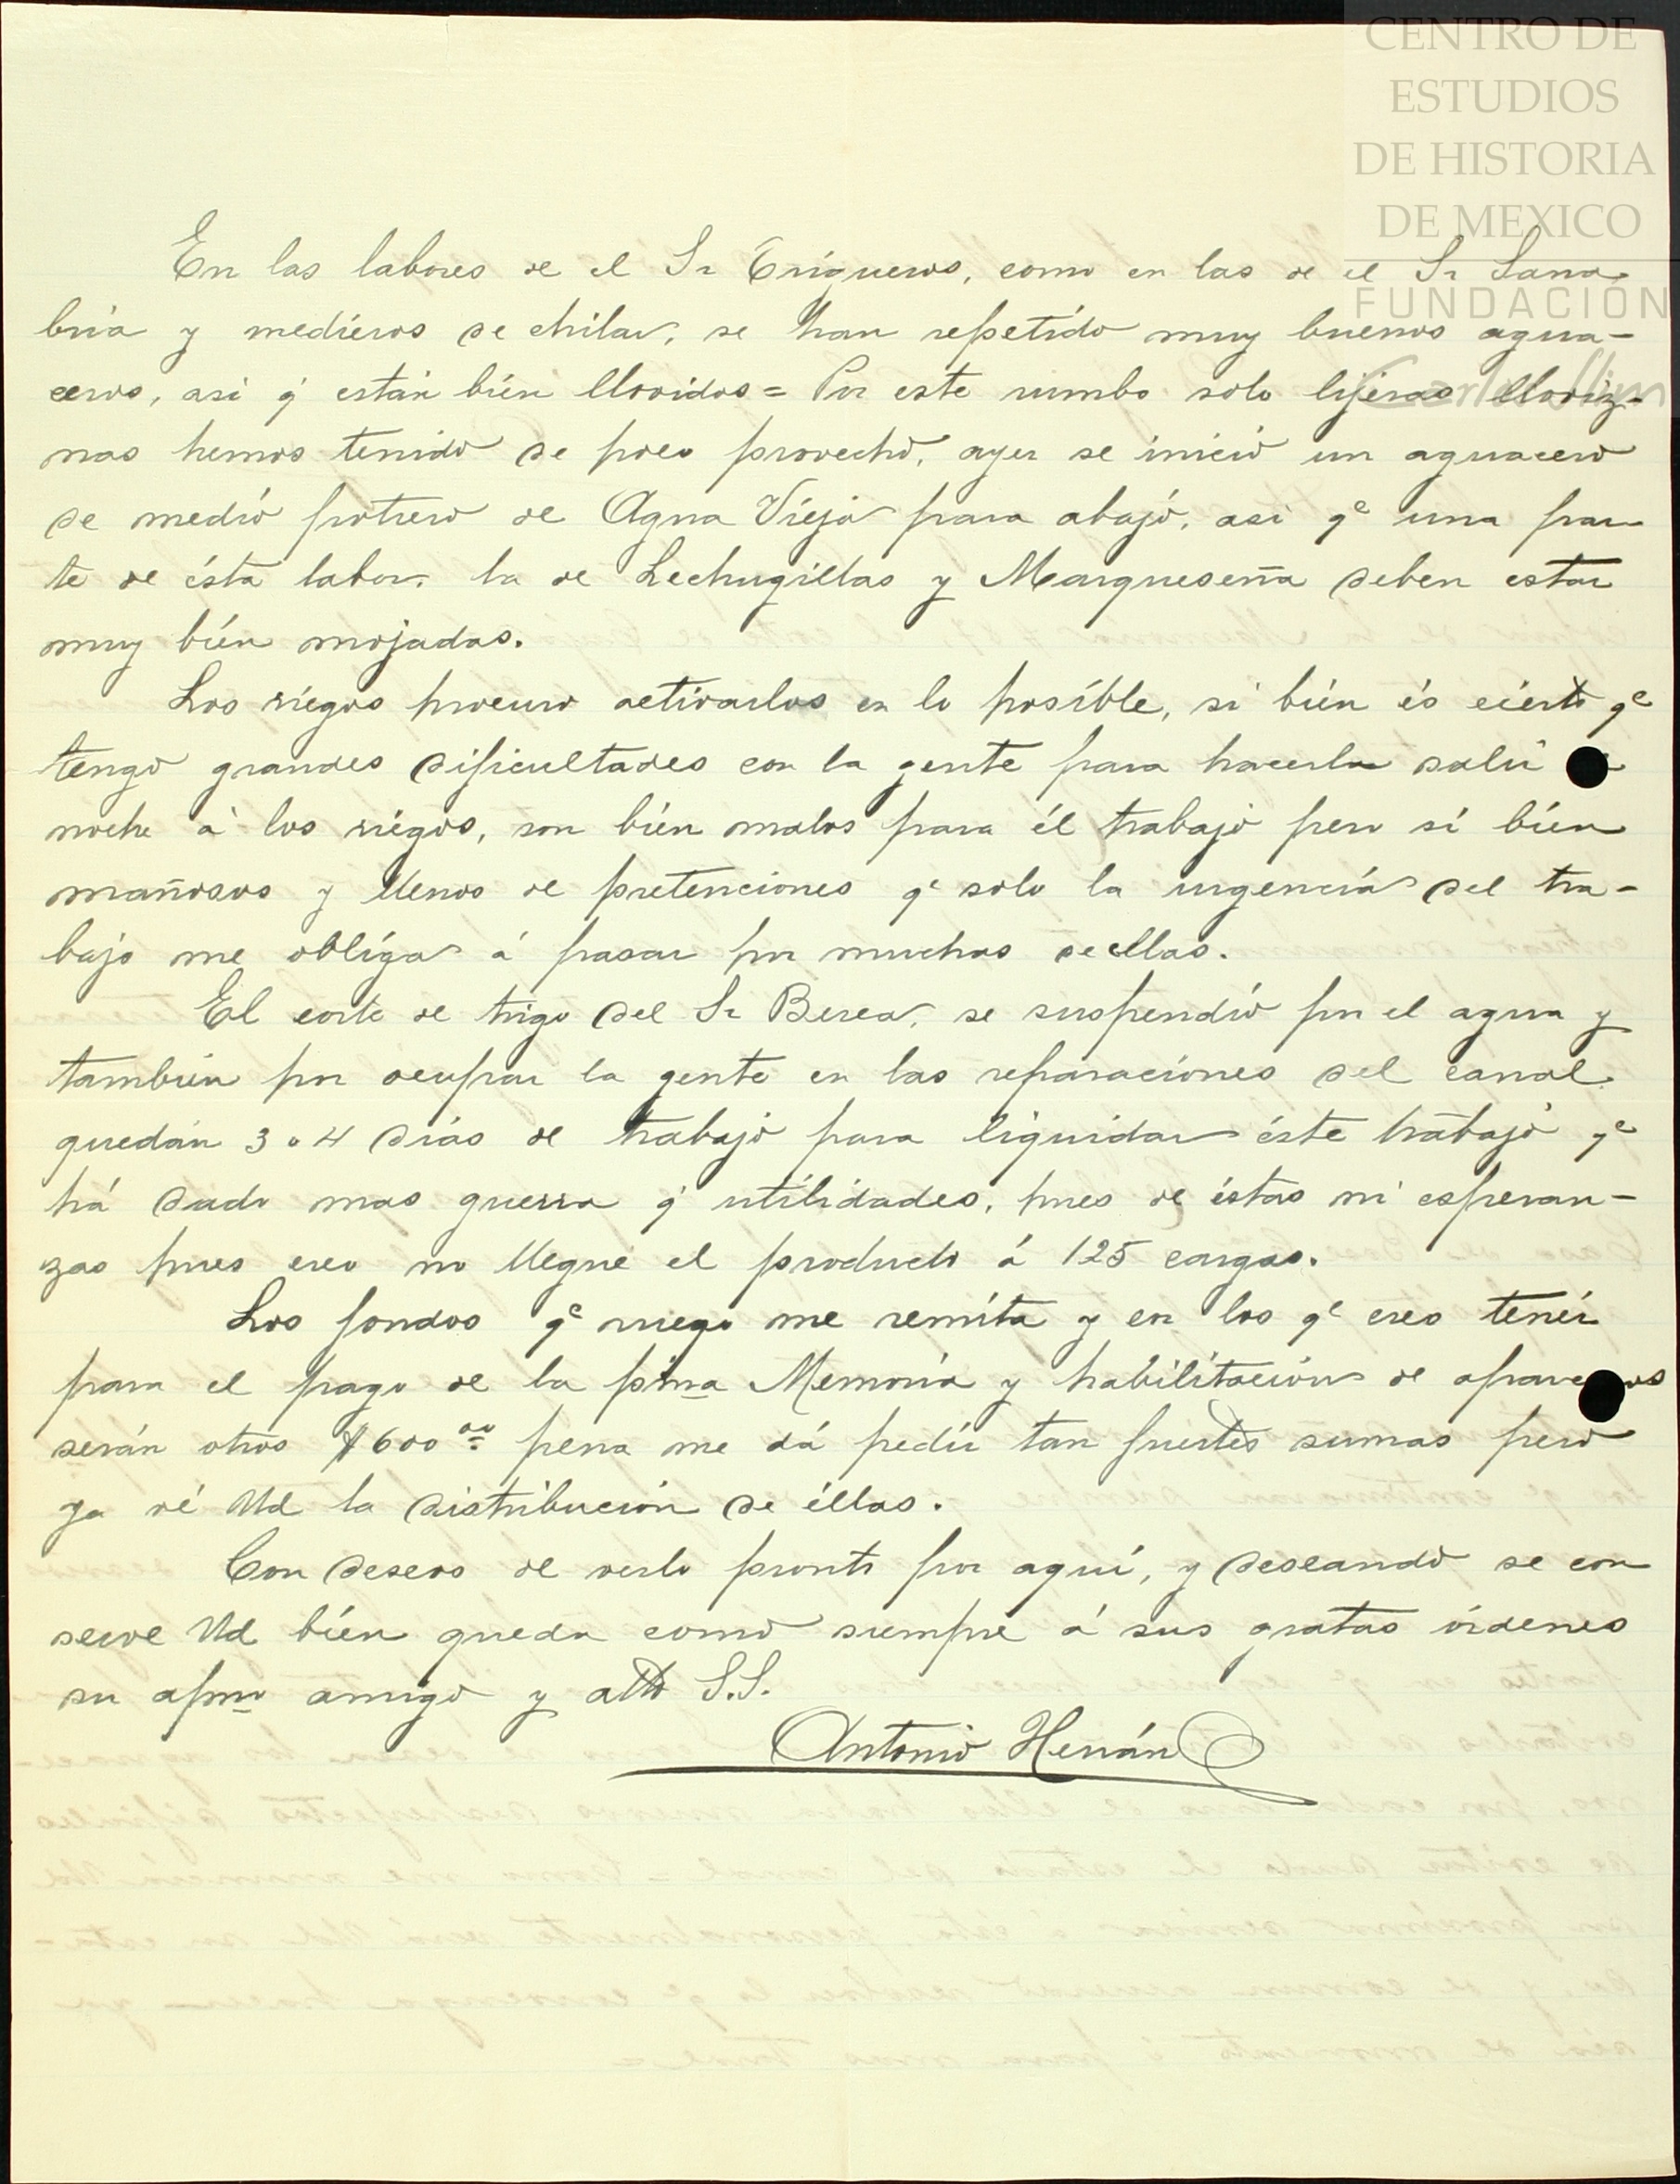 CENTRO DE
ESTUDIOS
DE HISTORIA
DE MEXICO
FUNDACIÓN
Carlos Slim
En las labores de el Sr Trigueros, como en las de el Sr Sana-
bria y medieros de chilar, se han repetido muy buenos agua-
ceros, asi q' están bién llovidos = Por este rumbo solo lijeras lloviz-
nas hemos tenido de poco provecho, ayer se inició un aguacero
de medió potrero de Agua Vieja para abajó, asi qe una par-
te de ésta labor, la de Lechugillas y Marqueseña deben estar
muy bién mojadas.
Los riegos procuro activarlos en lo posíble, si bién és ciérto qe
tengo grandes dificultades con la gente para hacerla salir
noche á los riégos, son bién malos para él trabajo pero sí bién
mañosos y llenos de pretenciones qe solo la urgencia del tra-
bajo me oblíga á pasar por muchas de ellas.
El corte de trigo del Sr Berea, se suspendió por el agua y
también por ocupar la gente en las reparaciónes del canal
quedán 3 o 4 dias de trabajo para liquidar éste trabajo qe
há dado mas guerra q' utílidades, pues de éstas ni esperan-
zas pues creo no llegue el producto á 125 cargas.
Los fondos qe ruego me remita y en los qe creo tenér
para el pago de la pma Memoria y habilitación de
serán otros $600 oo pena me dá pedir tan fuertes sumas pero
ya vé Ud la distribución de éllas.
Con deseos de verlo pronto por aquí, y deseando se con
serve Ud bién queda como siempre á sus gratas órdenes
su afmo amigo y atto S.S.
Antonio Hernán